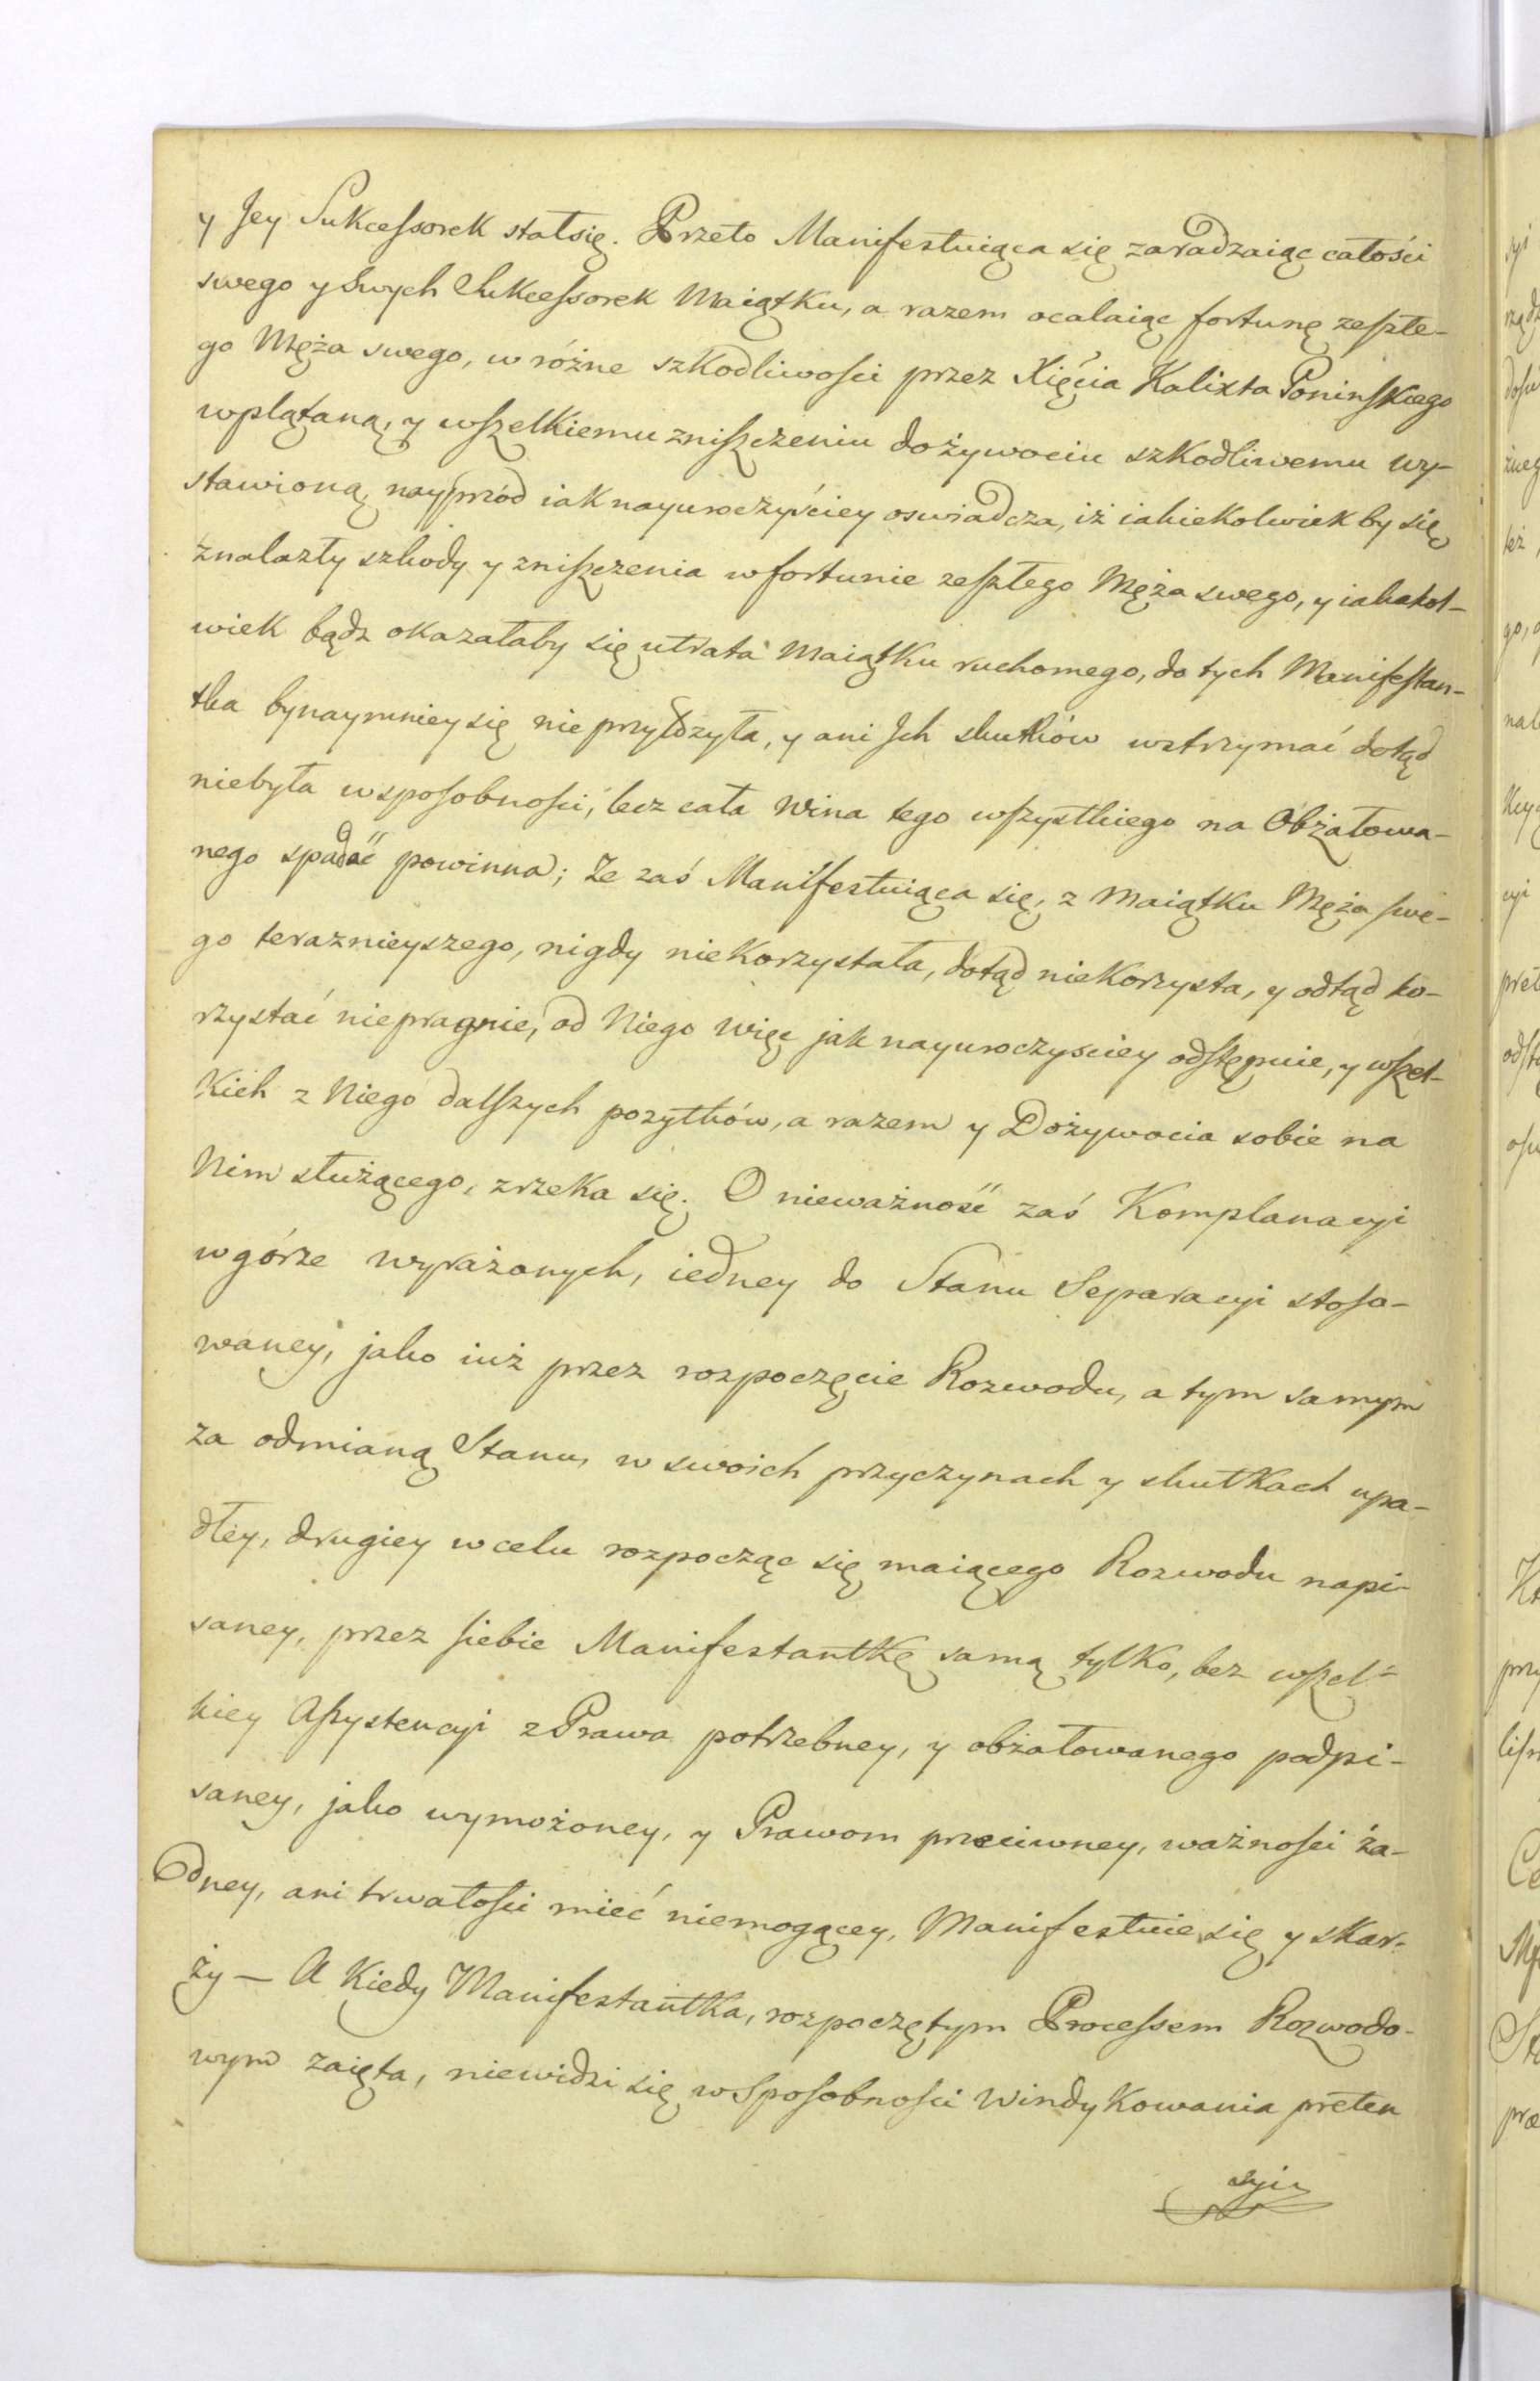 y Jey Sukcessorek stałsię. Przeto Manifestuiąca się zaradzaiąc całości
swego y Swych Sukcessorek Maiątku, a razem ocalaiąc fortunę zeszłe-
go Męża swego, w różne szkodliwości przez Xięcia Kalixta Poninskiego
wplątaną, y wszelkiemu zniszczeniu dożywociu szkodliwemu wy-
stawioną, nayprzód iak nayuroczyściey oswiadcza, iż iakiekolwiek by się
znalazły szkody y zniszczenia w fortunie zeszłego Męża swego, y iakakol-
wiek bądz okazałaby się utrata Maiątku ruchomego, do tych Manifestan-
tka bynaymniey się nie przyłożyła, y ani Jch skutków wstrzymać dotąd
niebyła wsposobności, lecz cała Wina tego wszystkiego na Obżałowa-
nego spadać powinna; Ze zaś Manifestuiąca się, z Maiątku Męża swe-
go teraznieyszego, nigdy niekorzystała, dotąd niekorzysta, y odtąd ko-
rzystać niepragnie, od Niego więc jak nayuroczysciey odstępuie, y wszel-
kich z Niego dalszych pozytków, a razem y Dożywocia sobie na
Nim służącego, zrzeka się. O nieważność zaś Komplanacyi
wgórze wyrażonych, iedney do Stanu Separacyi stoso-
waney, jako iuż przez rozpoczęcie Rozwodu, a tym samym
za odmianą Stanu, w swoich przyczynach y skutkach upa-
dłey, drugiey wcelu rozpocząc się maiącego Rozwodu napi-
saney, przez siebie Manifestantkę samą tylko, bez wszel-
kiey Assystencyi z Prawa potrzebney, y obżałowanego podpi-
saney, jako wymożoney, y Prawom przeciwney, ważności ża-
dney, ani trwałości mieć niemogącey, Manifestuie się y skar-
ży — A Kiedy Manifestantka, rozpoczętym Processem Rozwodo-
wym zaięta, niewidzi się w Sposobności Windykowania preten
syi